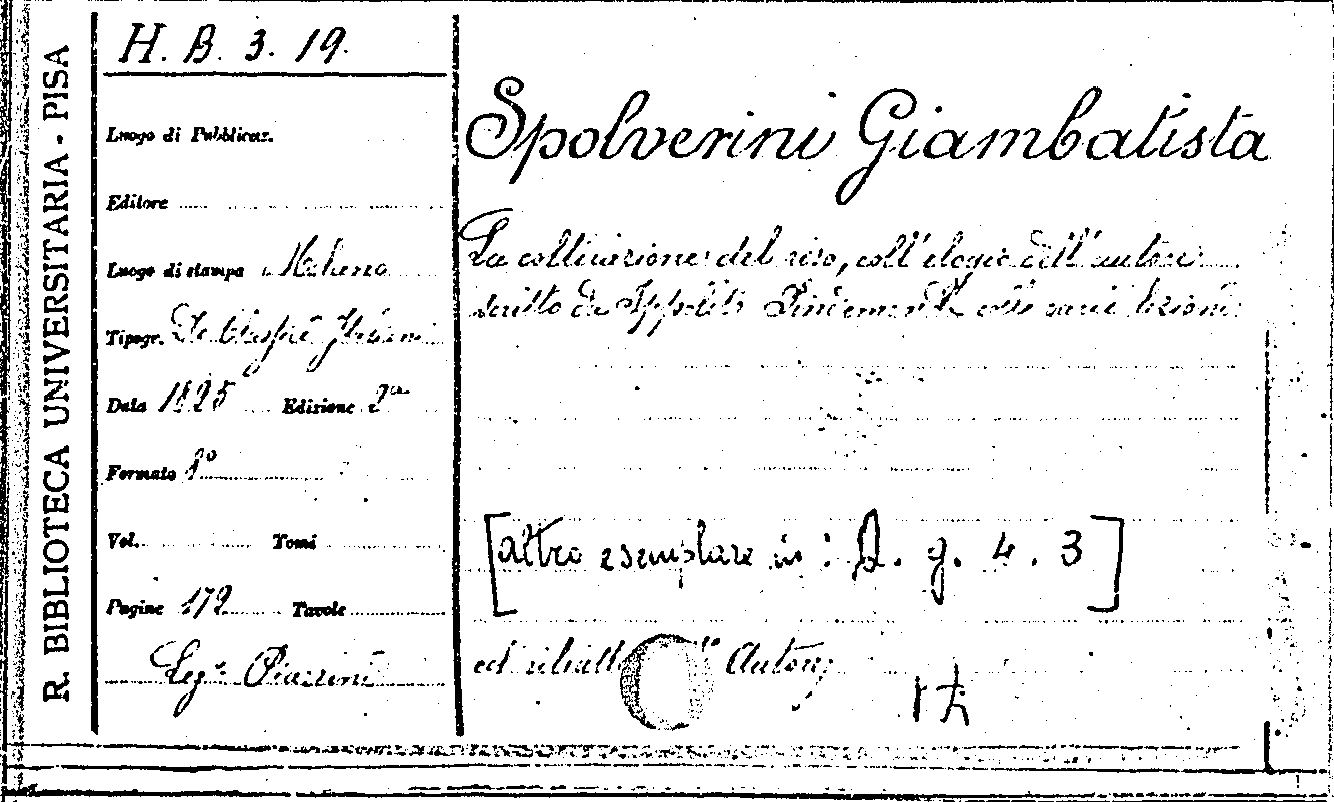 R. BIBLIOTECA UNIVERSITARIA - PISA
H. B. 3. 19.
Luogo di Pubblicaz.
Editore
Luogo di stampa Milano
Tipogr.
Data 1825 Edizione 2ª
Formato
Vol. Tomi
Pagine 172 Tavole
Leg. Piazzini
Spolverini Giambatista
La coltivazione del riso, coll'elogio dell'autore
scritto da Ippolito Pindemonte colle varie lezioni
[altro esemplare in: A. g. 4. 3]
col ritratto Autore